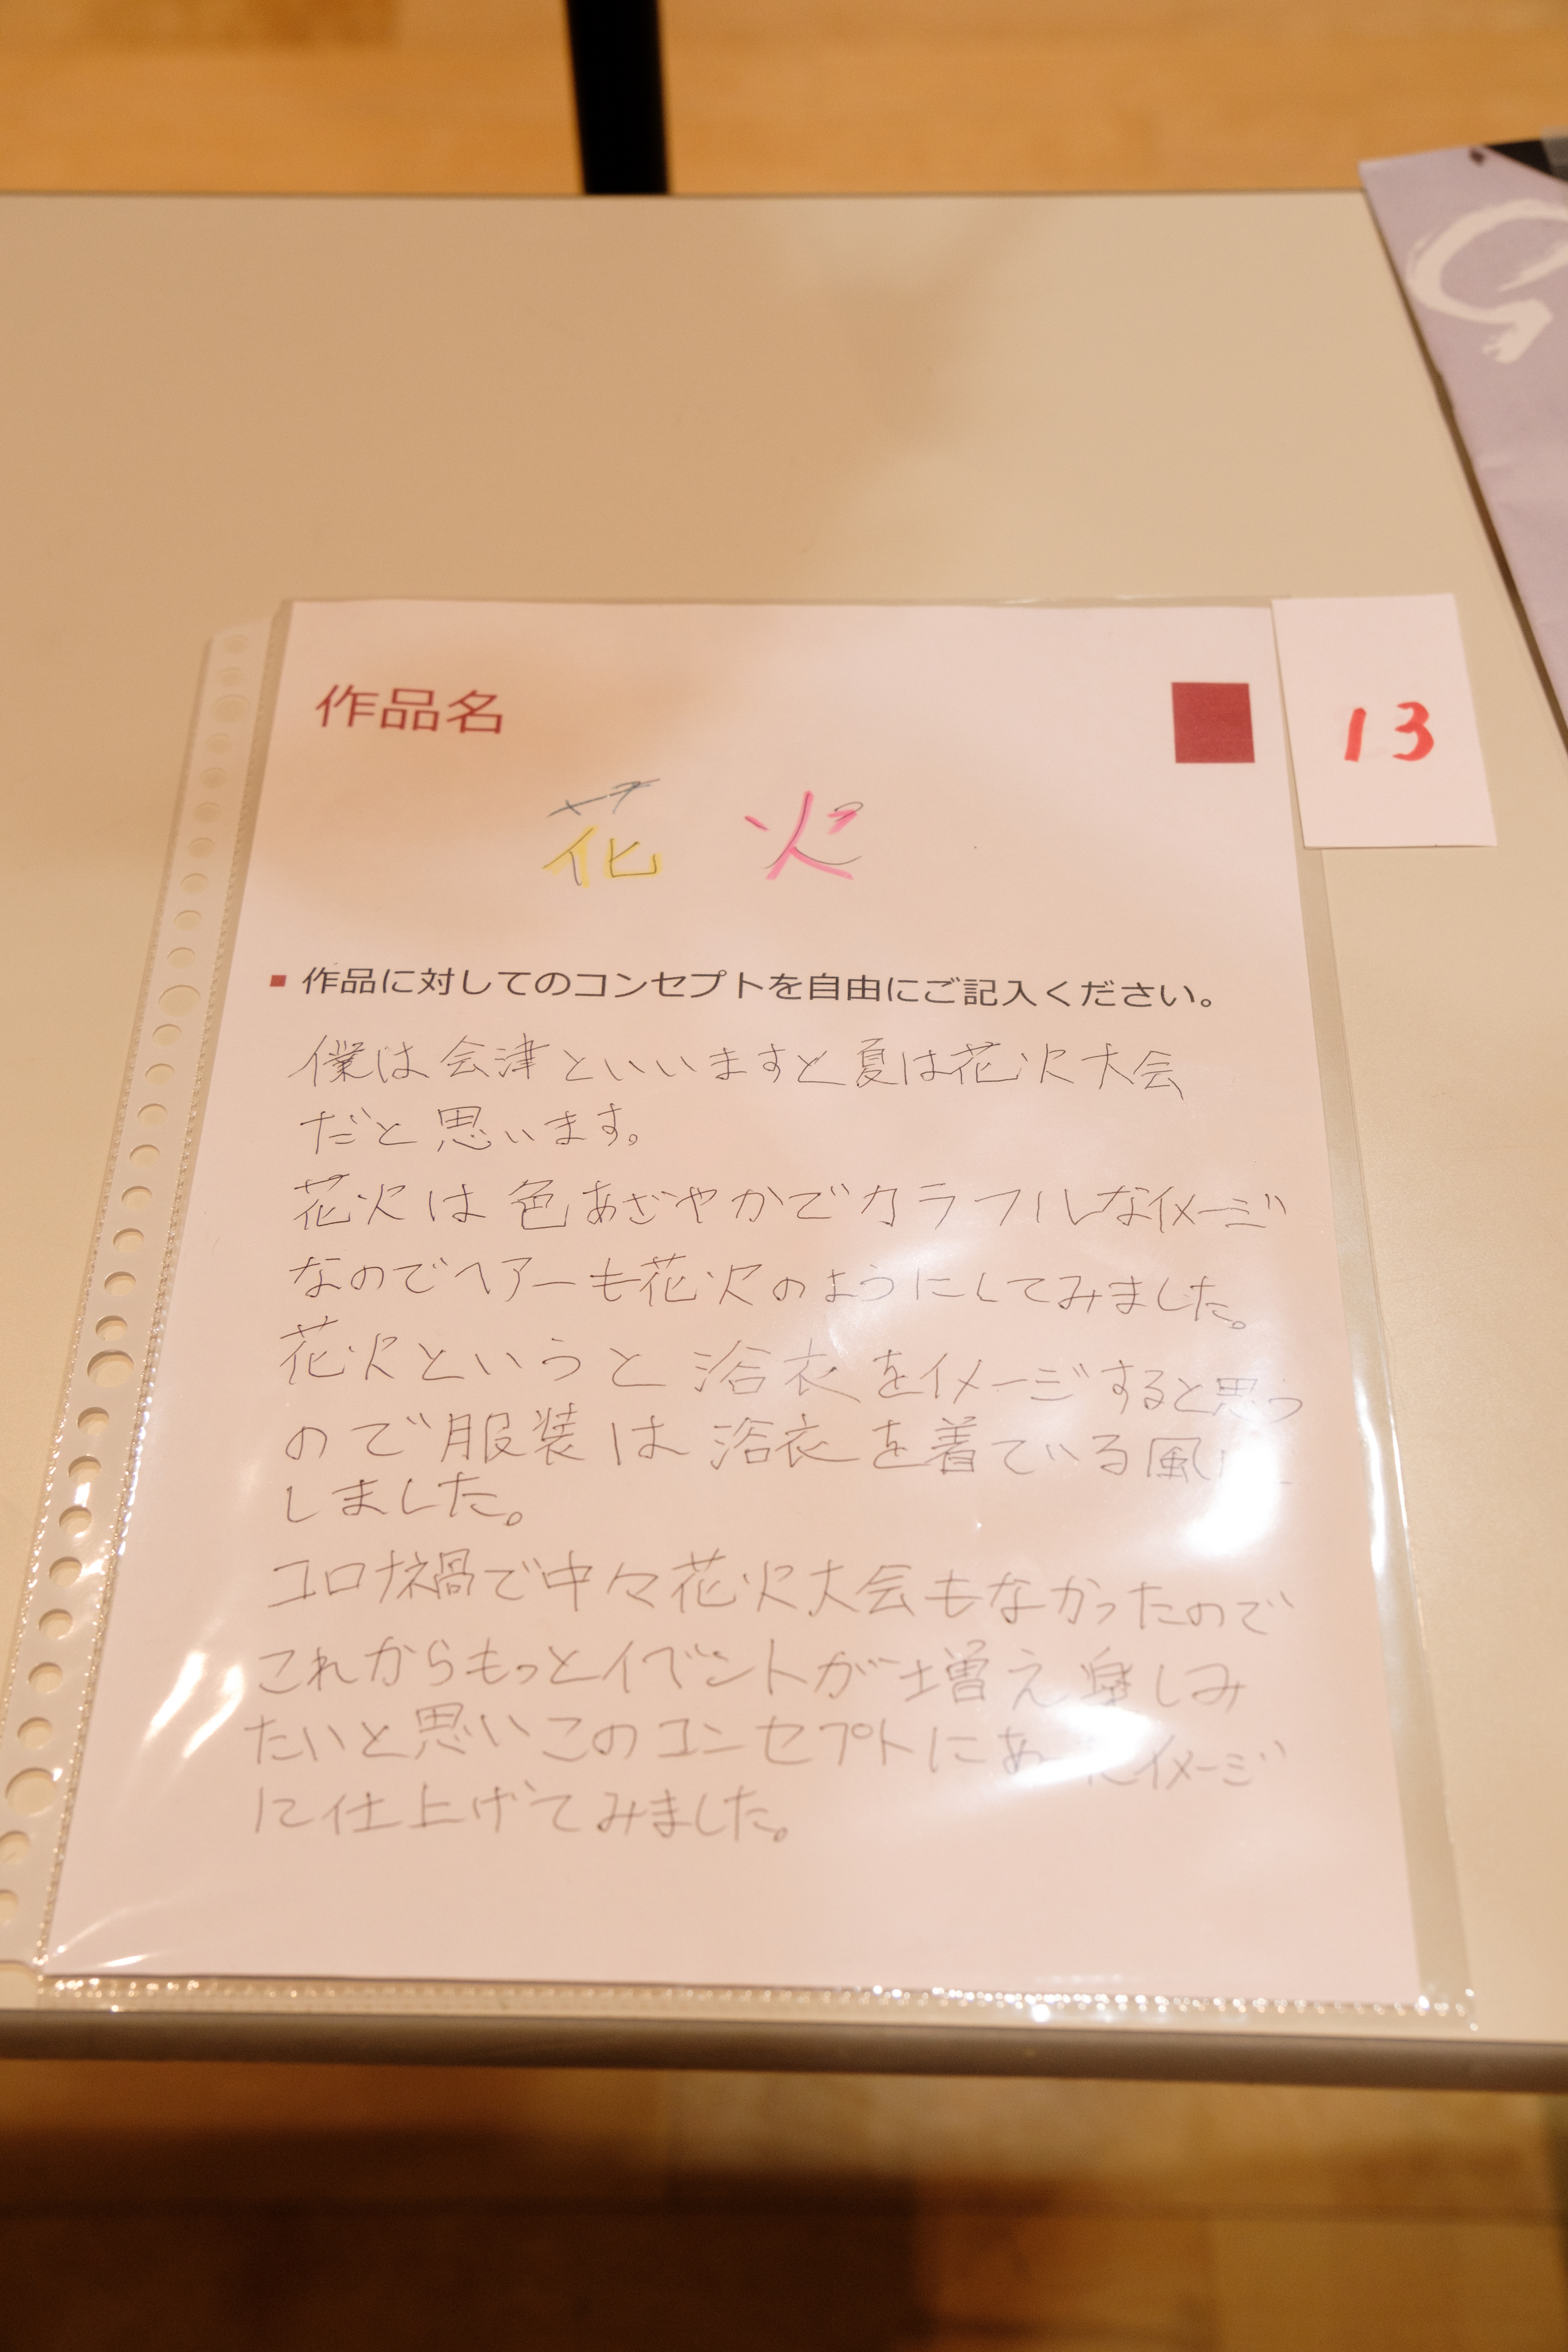 作品名
13
花火
作品に対してのコンセプトを自由にご記入ください。
僕は会津といいますと夏は花火大会
だと思います。
花火は色あざやかでカラフルなイメージ
なのでヘアーも花火のようにしてみました。
花火というと浴衣をイメージすると思う
ので服装は浴衣を着ている風に
しました。
コロナ禍で中々花火大会もなかったので
これからもっとイベントが増え楽しみ
たいと思いこのコンセプトにあったイメージ
に仕上げてみました。